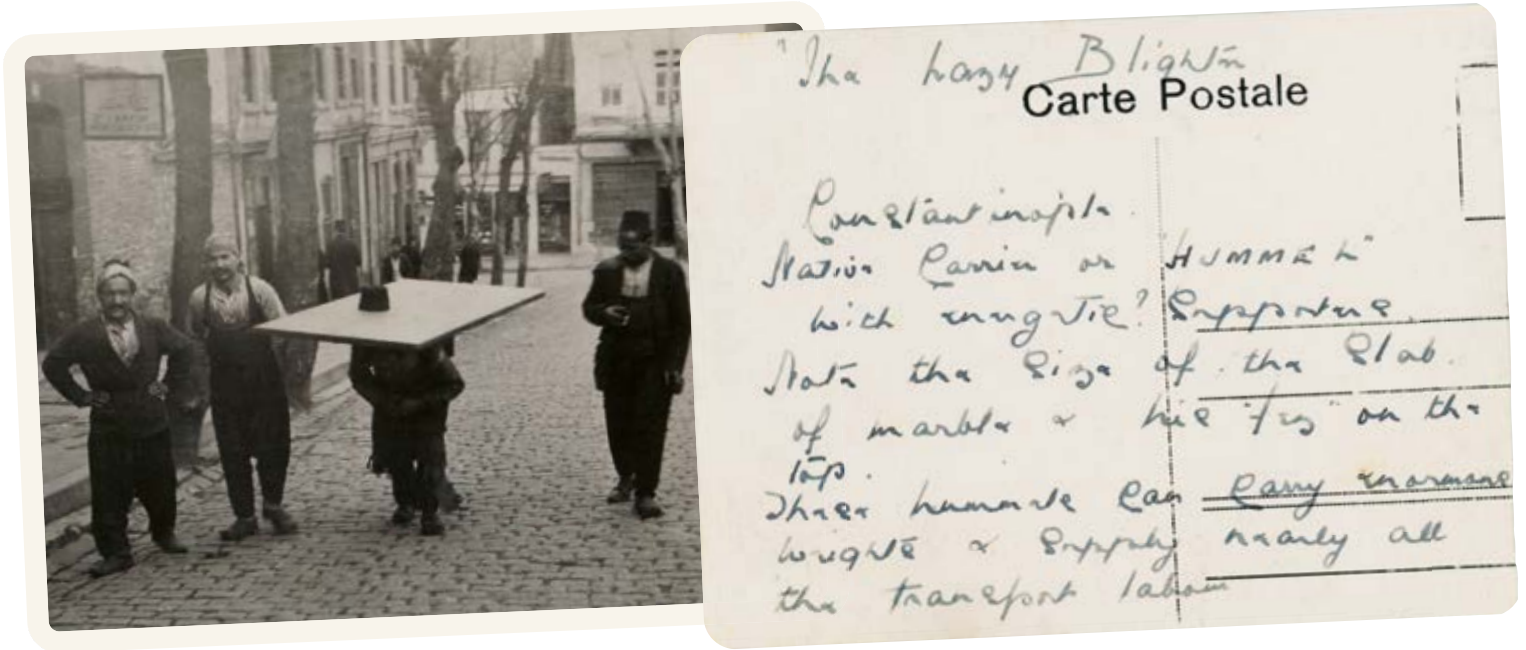 "The Lazy Blighter
Carte Postale
Constantinople.
Native Carrier or "HUMMEL"
with energetic? Supporters.
Note the Size of the Slab.
of marble & his "fez" on the
top.
These hummels can carry enormous
weights & supply nearly all
the transport labour